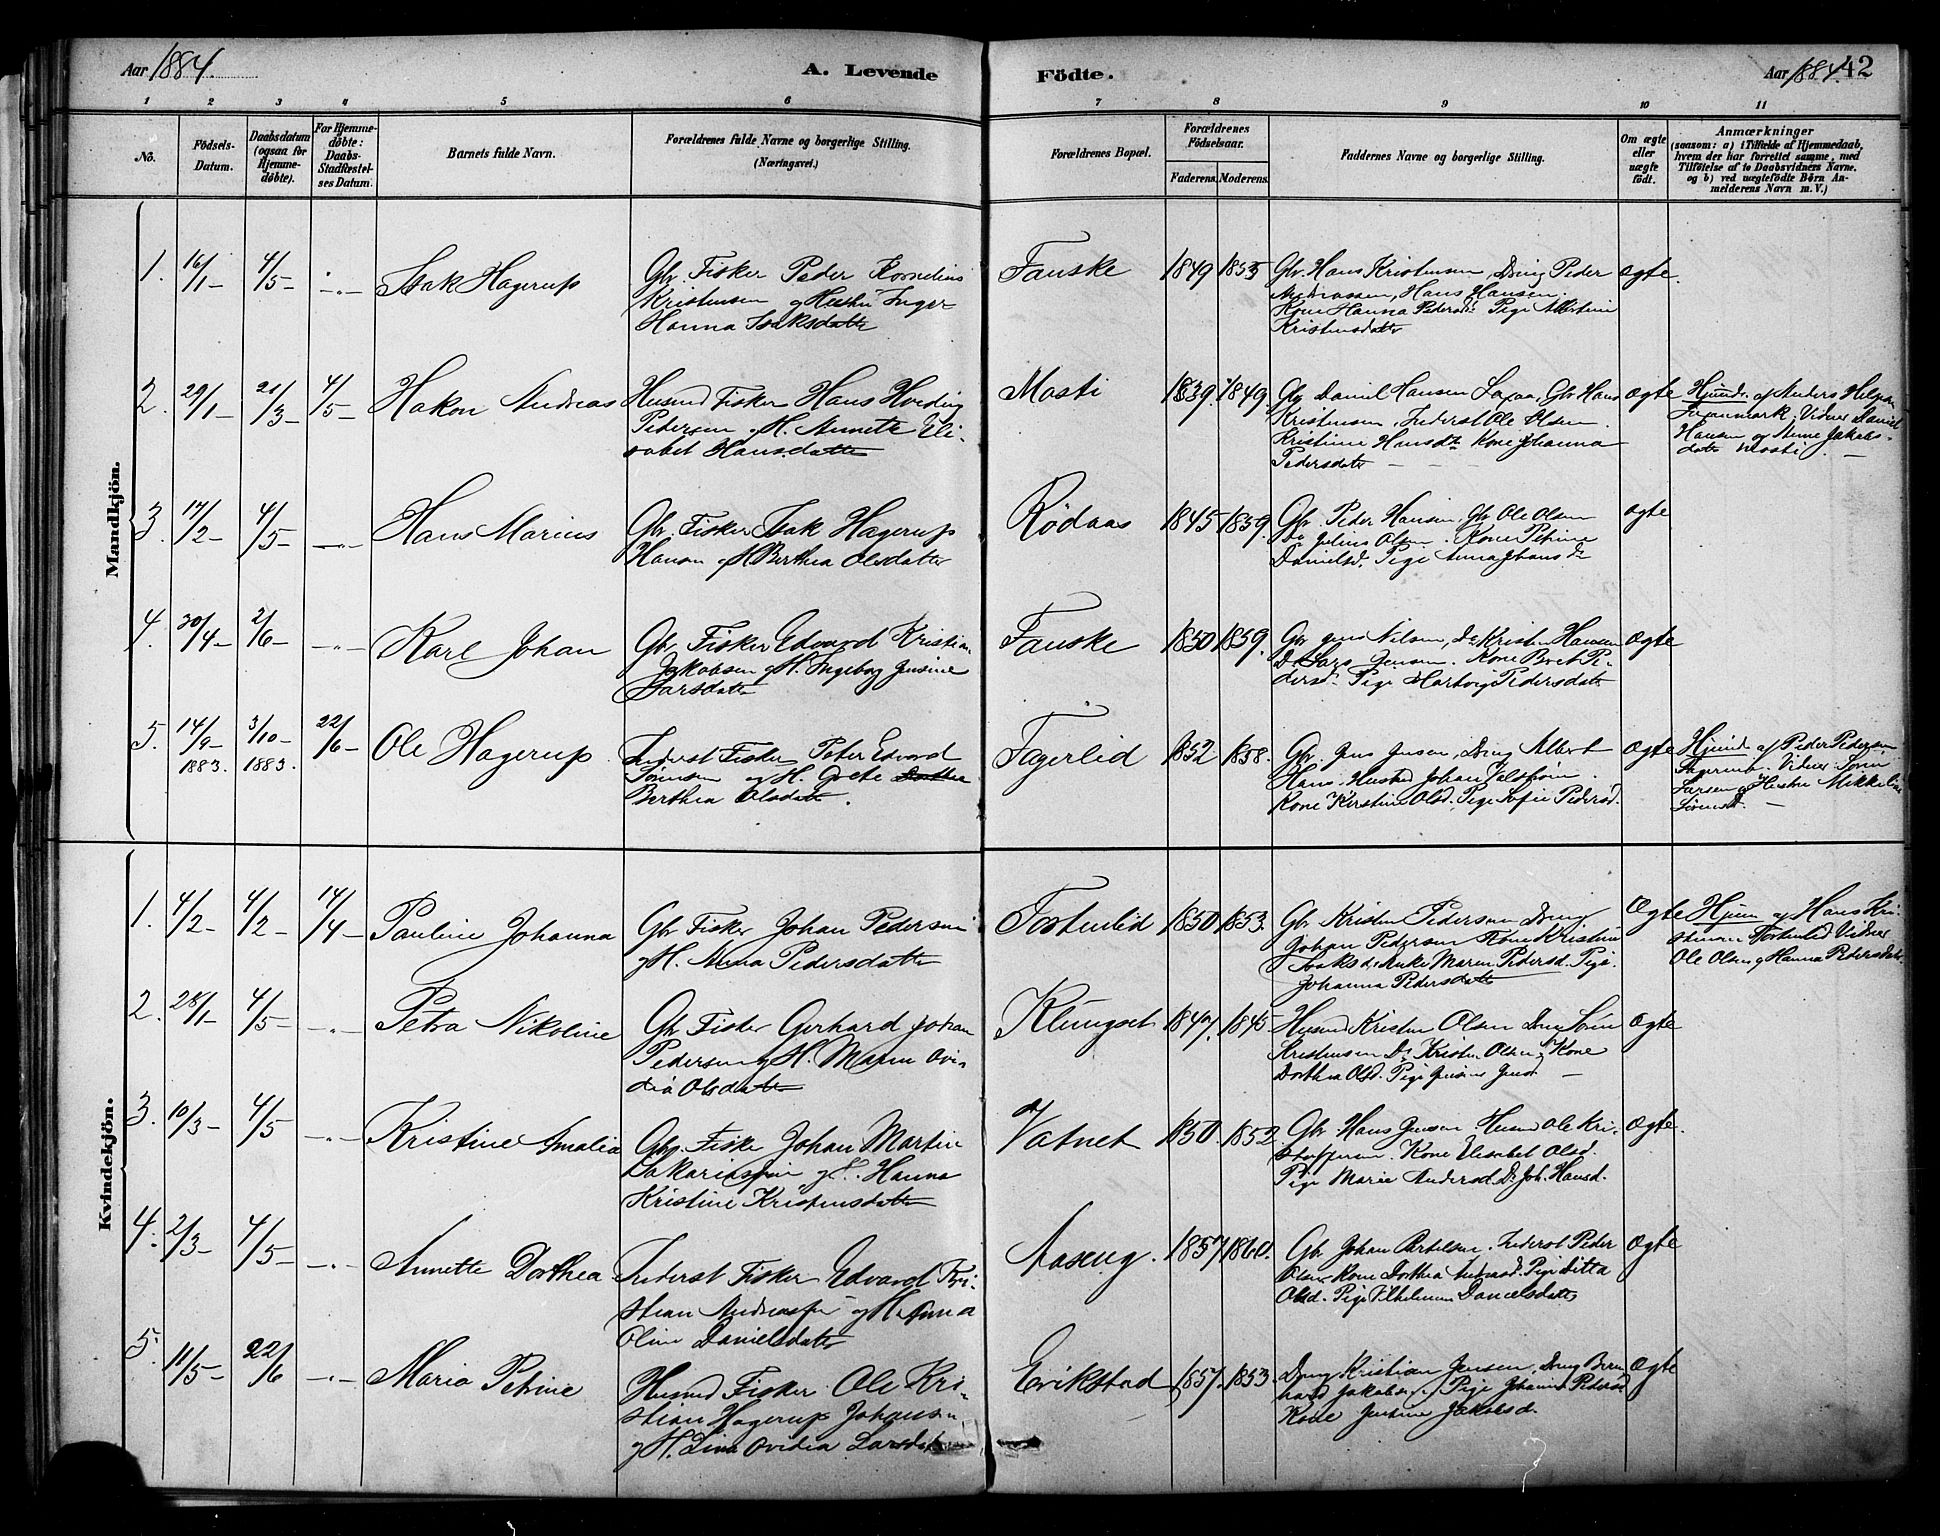 Aar 1884.
A. Levende Födte.
Aar 1884. 42
1 2 3 4 5 6 7 8 9 10 11
No.
Födsels-Datum.
Daabsdatum (ogsaa for Hjemme-döbte).
For Hjemme-döbte: Daabs-Stadfæstelses Datum.
Barnets fulde Navn.
Forældrenes fulde Navne og borgerlige Stilling. (Næringsvei.)
Forældrenes Bopæl.
Forældrenes Födselsaar.
Faderens. Moderens.
Faddernes Navne og borgerlige Stilling.
Om ægte eller uægte födt.
Anmærkninger
(saasom: a) i Tilfælde af Hjemmedaab, hvem der har forrettet samme, med Tilföielse af to Daabsvidners Navne, og b) ved uægtefödte Börn Anmelderens Navn m. V.)
Mandkjön.
1. 16/1- 4/5- -"- Isak Hagerup
Gbr. Fisker Peder Kornelius
Kristensen og Hustru Inger
Hanna Isaksdatter
Fauske 1849 1853
Gbr. Hans Kristensen, Dreng Peder
Andreassen, Hans Hansen.
Kone Hanna Pedersd. Pige Albertine
Kristensdatter
ægte.
2. 29/1- 21/3- 4/5- Hakon Andreas
Husmd Fisker Hans Hveding
Pedersen og H. Annette Eli-
sabet Hansdatter
Mosti 1839. 1849.
Gbr Daniel Hansen, Gbr Hans
Kristensen, Inderst Ole Olsen.
Kristine Hansdr Kone Johanna
Pedersdatter
ægte
Hjmd. af Anders
Vidner Daniel
Hansen og Anne Jakobs-
datter Mosti.
3. 17/2- 4/5- -"- Hans Marius
Gbr. Fisker Isak Hagerup
Hansen og H Berthea Olsdatter
Rødaas 1845 1839.
Gbr. Peder Hansen, Gbr Ole Olsen
Do Julius Olsen. Kone Petrine
Danielsd. Pige Anna Johansdr
ægte
4. 30/4- 2/6- -"- Karl Johan
Gbr. Fisker Edvard Kristian
Jakobsen og H. Ingeborg Jensine
Larsdatter
Fauske 1850 1859.
Gbr Jens Nilsen, Do Kristen Hansen
Do Lars Jensen. Kone Beret Pe-
dersd. Pige Hartvig Pedersdatter
ægte
5. 14/9- 1883. 3/10- 1883. 22/6- Ole Hagerup.
Inderst Fisker Peter Edvard
Sörensen og H. Grete
Berthea Olsdatter.
Fagerlid 1852 1858.
Gbr. Jens Jensen, Dreng Albert
Hans. Husmd Johan
Kone Kerstine Olsd. Pige Sofie Pedersd.
ægte
Hjmd af Peder Pedersen
Vidner Sören
Larsen og Hustru Mikkeline
Sörensd.
Kvindekjön.
1. 4/2- 4/2- 14/4- Pauline Johanna
Gbr Fisker Johan Pedersen
og H. Anna Pedersdatter
Tortenlid 1850 1853.
Gbr. Kristen Pedersen Dreng
Johan Pedersen Kone Kristine
Isaksd. Enke Maren Pedersd. Pige
Johanna Pedersdatter
Ægte
Hjem af Hans Kri-
stensen Tortenlid Vidner
Ole Olsen og Hanna Pedersdatter.
2. 28/1- 4/5- -"- Petra Nikoline
Gbr Fisker Gerhard Johan
Pedersen og H. Maren Ovi-
dia Olsdatter
Klungset 1847. 1845
Husmd Kristen Olsen Dreng Sören
Kristensen Do Kristen Olsen, Kone
Dorthea Olsd. Pige Jensine Jensd.
Ægte
3. 10/3- 4/5- -"- Kristine Amalia
Gbr. Fisker Johan Martin
Sakariassen og H. Hanna
Kristine Kristensdatter
Vatnet 1850. 1852.
Gbr. Hans Jensen Husmd Ole Kri-
stoffersen. Kone Elisabet Olsd.
Pige Marie Andersd. Do Joh. Hansd.
Ægte.
4. 2/3- 4/5- -"- Annette Dorthea
Inderst Fisker Edvard Kri-
stian Andreassen og H. Anna
Oline Danielsdatter
Aaseng. 1857. 1860.
Gbr Johan Bertelsen. Inderst Peder
Olsen Kone Dorthea Andersd. Pige Ditta
Olsd. Pige Vilhelmine Danielsdatter
Ægte
5. 11/5- 22/6 -"- Maria Petrine
Husmd Fisker Ole Kri-
stian Hagerup Johansen
og H. Lina Ovidia Larsdatter
Erikstad 1857. 1853.
Dreng Kristian Jensen, Dreng Bern
hard Jakobsen, Pige Johanne Pedersd.
Kone Justine Jakobsd.
Ægte